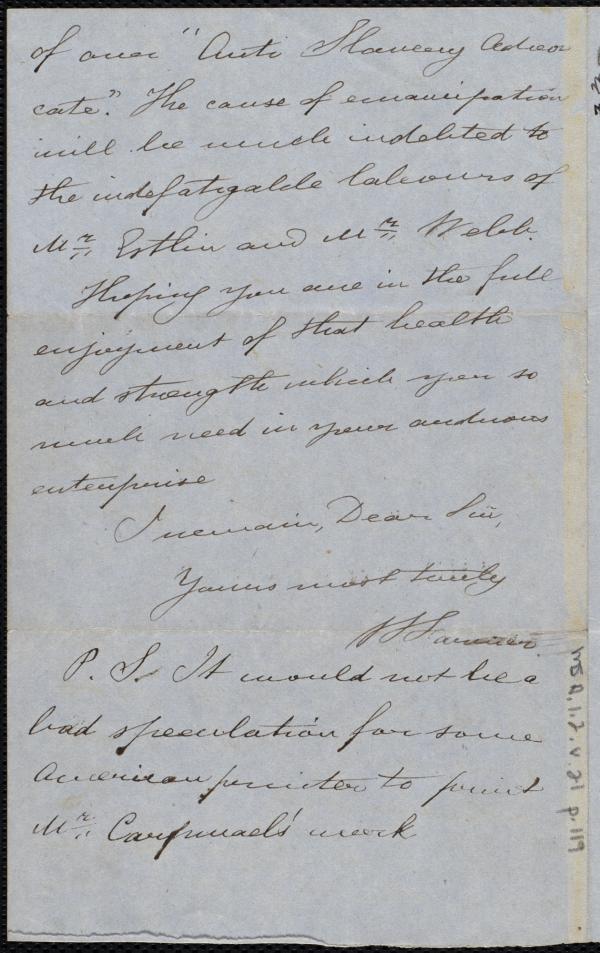 of our "Anti Slavery Advo
cate." The cause of emancipation
will be much indebted to
the indefatigable labours of
Mr. Estlin and Mr. Webb.
Hoping you are in the full
enjoyment of that health
and strength which you so
much need in your arduous
enterprise
I remain, Dear Sir,
Yours most truly
P. S. It would not be a
bad speculation for some
American printer to print
Mr. work
Ms. A. 1. 2. v. 21 p. 119